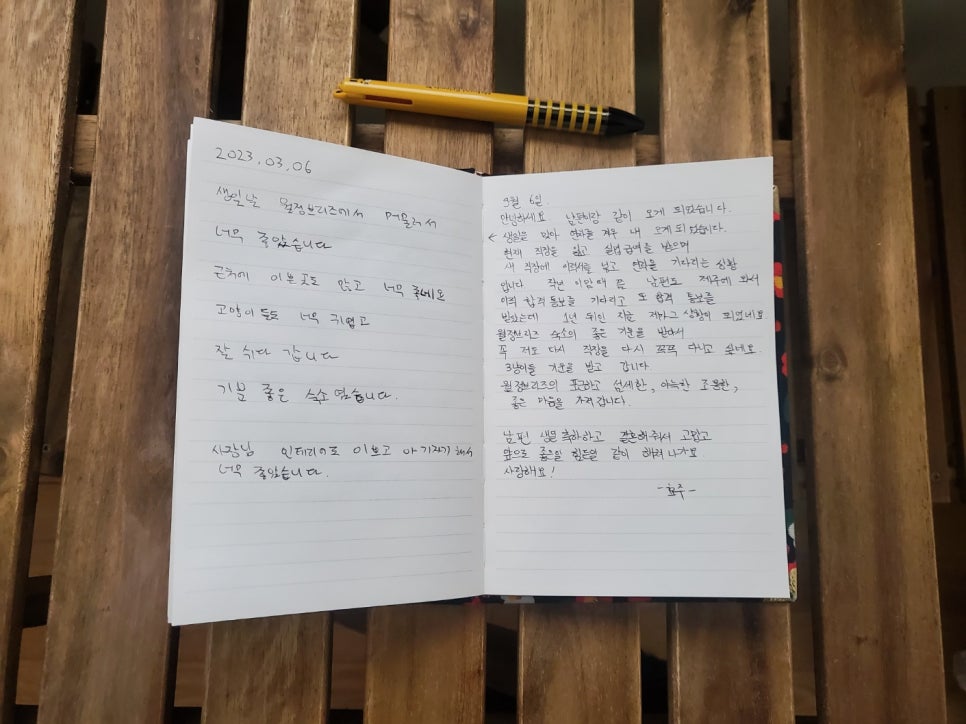 2023.03.06
생일날 월정브리즈에서 머물러서
너무 좋았습니다
근처에 이쁜곳도 많고 너무 좋네요
고양이들도 너무 귀엽고
잘 쉬다 갑니다
기분 좋은 숙소였습니다.
사장님 인테리어도 이쁘고 아기자기해서
너무 좋았습니다.
9월 6일.
안녕하세요 남편이랑 같이 오게 되었습니다.
생일을 맞아 연차를 겨우 내 오게 되었습니다.
현재 직장을 잃고 실업급여를 받으며
새 직장에 이력서를 넣고 연락을 기다리는 상황
입니다. 작년 이맘때 쯤 남편도 제주에 와서
이직 합격통보를 기다리고 또 합격 통보를
받았는데 1년 뒤인 지금 제가 그 상황이 되었네요
월정브리즈 숙소의 좋은 기운을 받아서
꼭 저도 다시 직장을 다시 꼭꼭 다니고 싶네요.
3냥이들 기운을 받고 갑니다.
월정브리즈의 포근하고 섬세한, 아늑한 조용한,
좋은 마음을 가져갑니다.
남편 생일 축하하고 결혼해줘서 고맙고
앞으로 좋은일 힘든일 같이 헤쳐나가요
사랑해요!